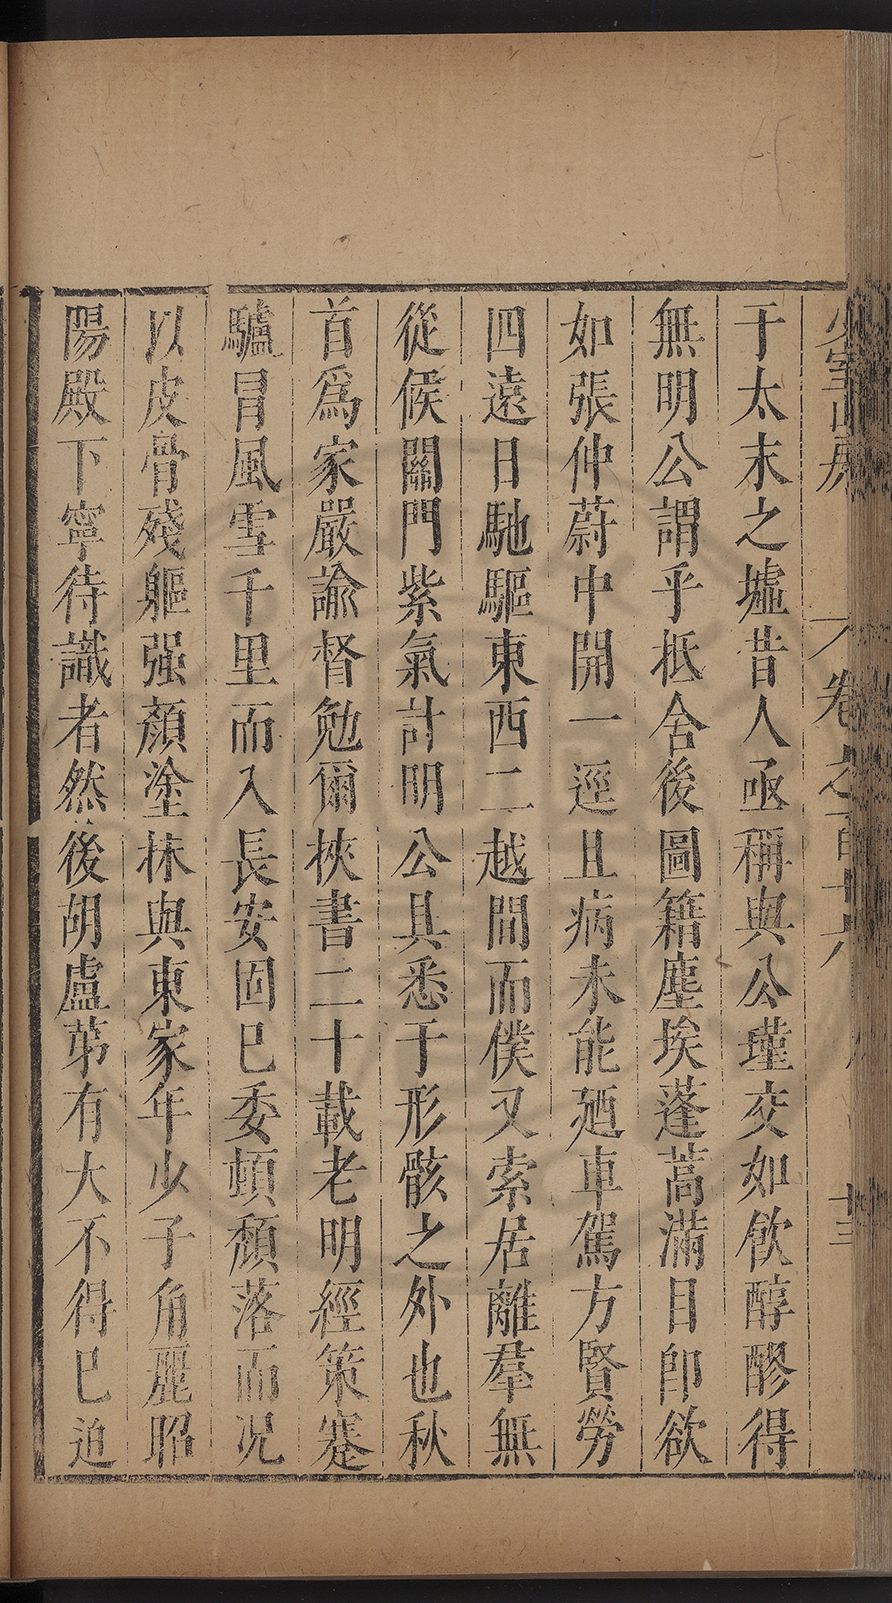 少室山房 卷之百十八 十三
于太末之墟昔人亟稱與公瑾交如飲醇醪得
無明公謂乎抵舍後圖籍塵埃蓬蒿滿目即欲
如張仲蔚中開一逕且病未能廼車駕方賢勞
四遠日馳驅東西二越間而僕又索居離羣無
從候關門紫氣計明公具悉于形骸之外也秋
首爲家嚴諭督勉爾挾書二十載老明經策蹇
驢冒風雪千里而入長安固已委頓頹落而况
以皮骨殘軀强顏塗抹與東家年少子角麗昭
陽殿下寧待識者然後胡盧第有大不得已迫